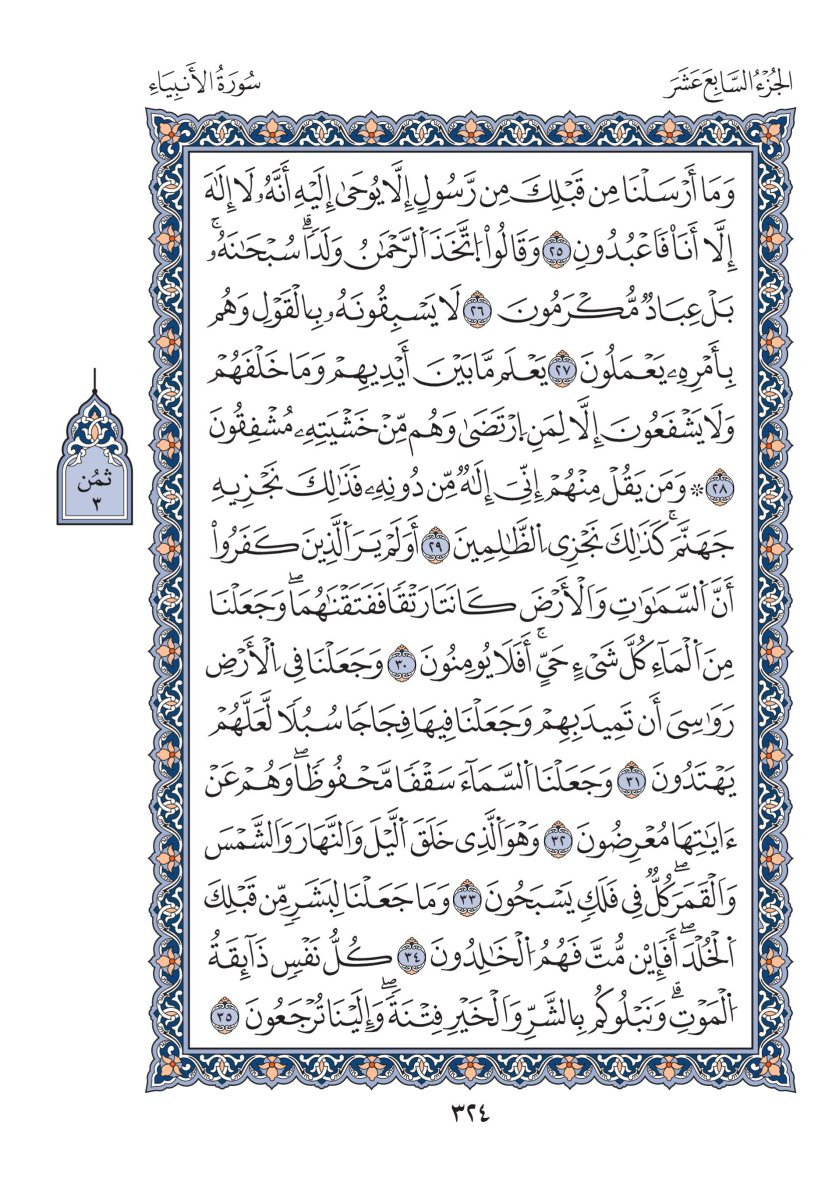 الجُزْءُ السَّابِعَ عَشَرَ
سُورَةُ الأَنبِيَاءِ
وَمَا أَرْسَلْنَا مِن قَبْلِكَ مِن رَّسُولٍ إِلَّا يُوحَىٰ إِلَيْهِ أَنَّهُۥ لَا إِلَٰهَ
إِلَّا أَنَا۠ فَاعْبُدُونِ ٢٥ وَقَالُوا۟ اُ۪تَّخَذَ اَ۬لرَّحْمَٰنُ وَلَدًاۗ سُبْحَٰنَهُۥۚ
بَلْ عِبَادٌ مُّكْرَمُونَ ٢٦ لَا يَسْبِقُونَهُۥ بِالْقَوْلِ وَهُم
بِأَمْرِهِۦ يَعْمَلُونَ ٢٧ يَعْلَمُ مَا بَيْنَ أَيْدِيهِمْ وَمَا خَلْفَهُمْ
وَلَا يَشْفَعُونَ إِلَّا لِمَنِ اِ۪رْتَضَىٰ وَهُم مِّنْ خَشْيَتِهِۦ مُشْفِقُونَ
٢٨ * وَمَن يَقُلْ مِنْهُمْ إِنِّيَ إِلَٰهٌ مِّن دُونِهِۦ فَذَٰلِكَ نَجْزِيهِ
جَهَنَّمَۚ كَذَٰلِكَ نَجْزِي اِ۬لظَّٰلِمِينَ ٢٩ أَوَلَمْ يَرَ اَ۬لَّذِينَ كَفَرُوا۟
أَنَّ اَ۬لسَّمَٰوَٰتِ وَالْأَرْضَ كَانَتَا رَتْقًا فَفَتَقْنَٰهُمَاۖ وَجَعَلْنَا
مِنَ اَ۬لْمَآءِ كُلَّ شَيْءٍ حَيٍّۚ أَفَلَا يُومِنُونَ ٣٠ وَجَعَلْنَا فِي اِ۬لْأَرْضِ
رَوَٰسِيَ أَن تَمِيدَ بِهِمْ وَجَعَلْنَا فِيهَا فِجَاجًا سُبُلًا لَّعَلَّهُمْ
يَهْتَدُونَ ٣١ وَجَعَلْنَا اَ۬لسَّمَآءَ سَقْفًا مَّحْفُوظًاۖ وَهُمْ عَنْ
ءَايَٰتِهَا مُعْرِضُونَ ٣٢ وَهُوَ اَ۬لَّذِي خَلَقَ اَ۬لَّيْلَ وَالنَّهَارَ وَالشَّمْسَ
وَالْقَمَرَۖ كُلٌّ فِي فَلَكٍ يَسْبَحُونَ ٣٣ وَمَا جَعَلْنَا لِبَشَرٍ مِّن قَبْلِكَ
اَ۬لْخُلْدَۖ أَفَإِيْن مُّتَّ فَهُمُ اُ۬لْخَٰلِدُونَ ٣٤ كُلُّ نَفْسٍ ذَآئِقَةُ
اُ۬لْمَوْتِۗ وَنَبْلُوكُم بِالشَّرِّ وَالْخَيْرِ فِتْنَةًۖ وَإِلَيْنَا تُرْجَعُونَ ٣٥
ثمُن
٣
٣٢٤